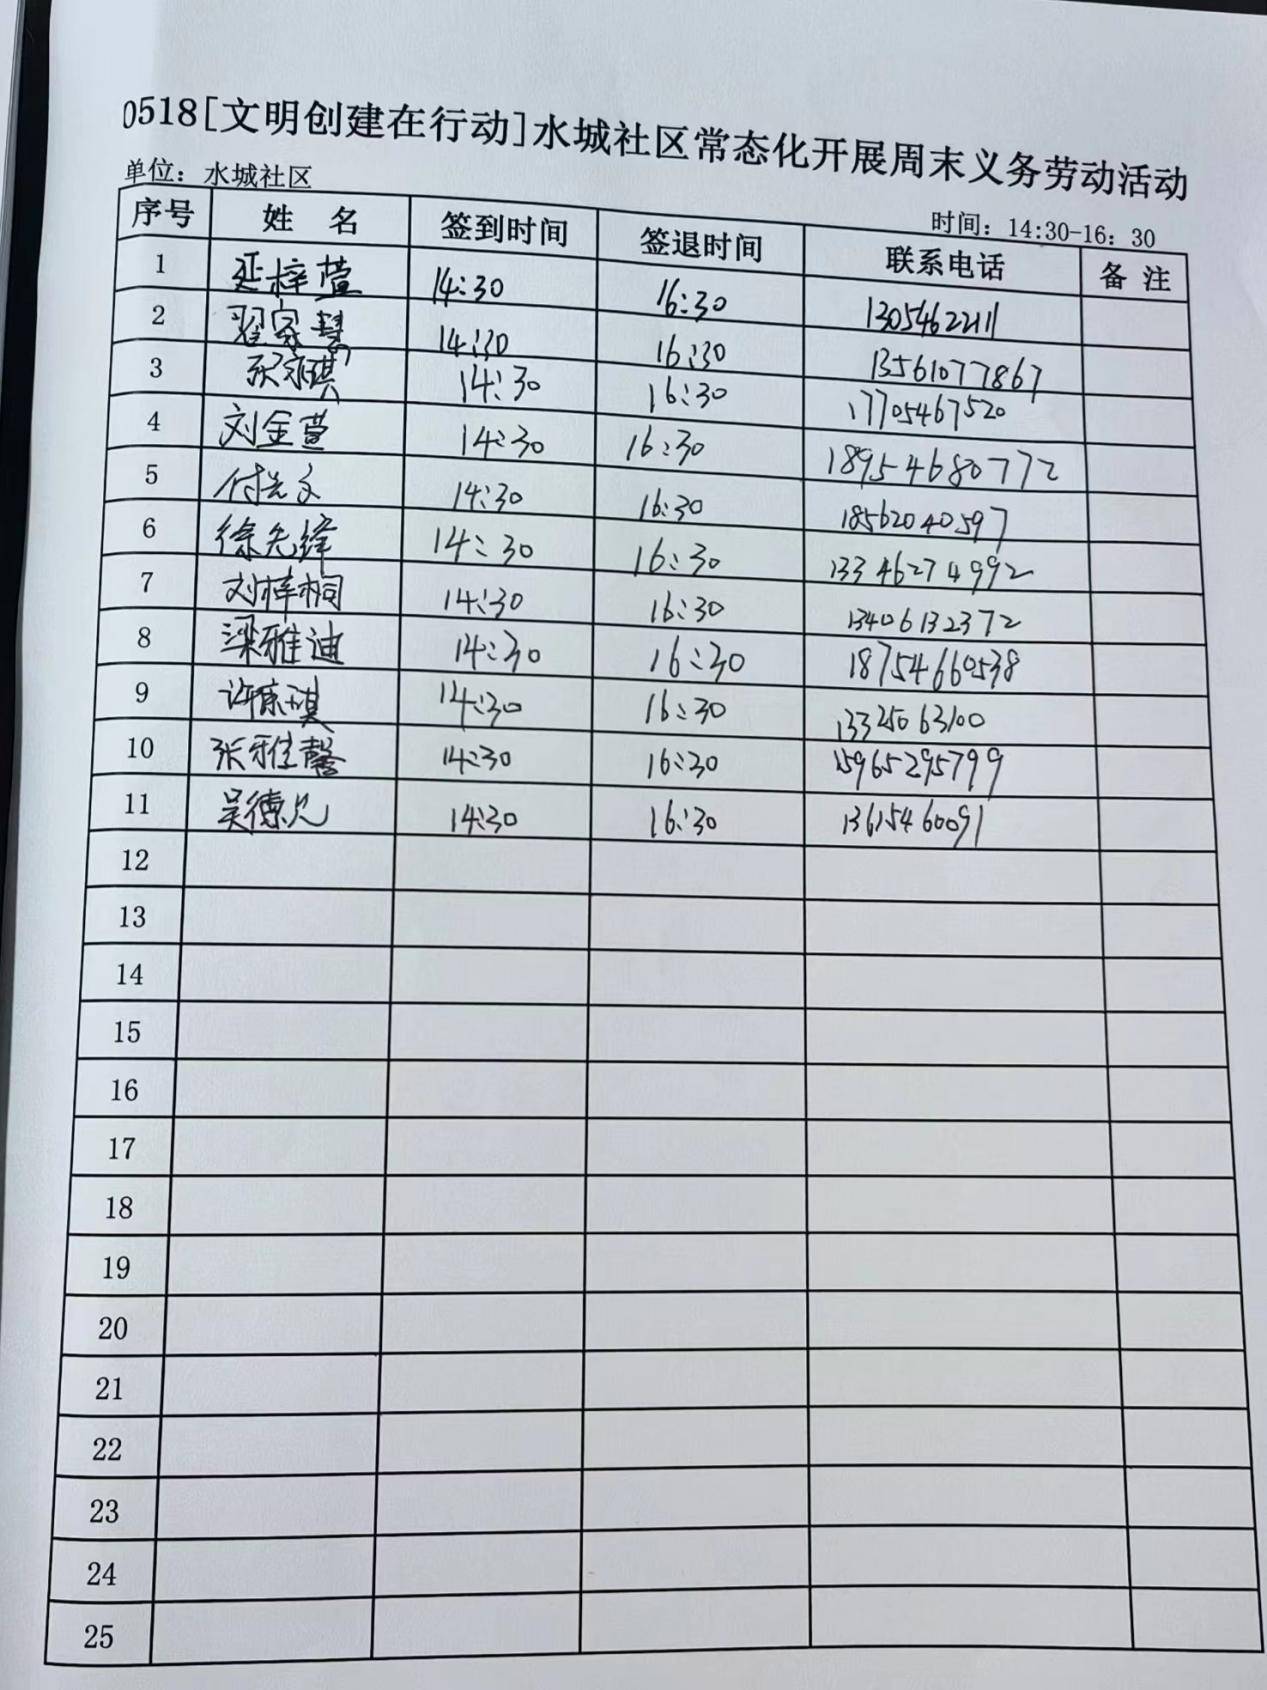 0518[文明创建在行动]水城社区常态化开展周末义务劳动活动
单位：水城社区
时间：14:30-16：30
序号 姓 名 签到时间 签退时间 联系电话 备 注
1 延梓萱 14:30 16:30 13054622111
2 翟家慧 14:30 16:30 13561077867
3 14:30 16:30 17705467520
4 刘金萱 14:30 16:30 18954680772
5 付光文 14:30 16:30 18562040597
6 徐先锋 14:30 16:30 13346274992
7 刘梓桐 14:30 16:30 13406132372
8 梁雅迪 14:30 16:30 18754660538
9 14:30 16:30 13325063100
10 张雅馨 14:30 16:30 15965295799
11 14:30 16:30 13615460091
12
13
14
15
16
17
18
19
20
21
22
23
24
25